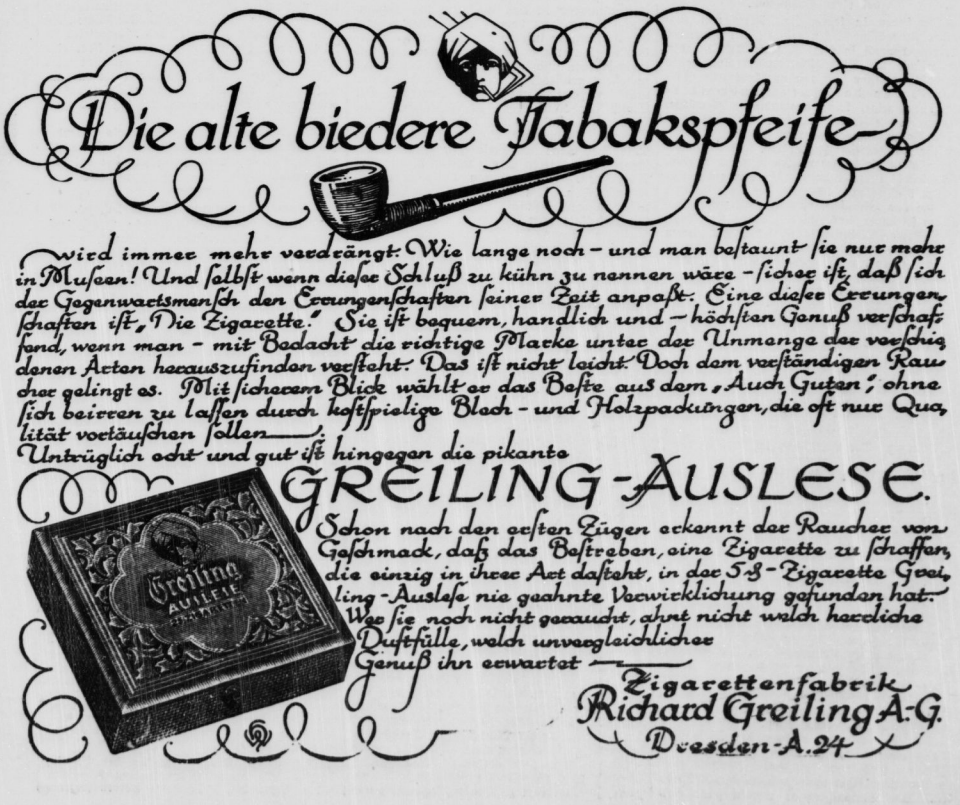 Die alte biedere Tabakspfeife
wird immer mehr verdrängt. Wie lange noch – und man bestaunt sie nur mehr
in Museen! Und selbst wenn dieser Schluß zu kühn zu nennen wäre – sicher ist, daß sich
der Gegenwartsmensch den Errungenschaften seiner Zeit anpaßt. Eine dieser Errungen-
schaften ist „Die Zigarette.“ Sie ist bequem, handlich und – höchsten Genuß verschaf-
fend, wenn man – mit Bedacht die richtige Marke unter der Unmenge der verschie-
denen Arten herauszufinden versteht. Das ist nicht leicht. Doch dem verständigen Rau-
cher gelingt es. Mit sicherem Blick wählt er das Beste aus dem „Auch Guten“, ohne
sich beirren zu lassen durch kostspielige Blech- und Holzpackungen, die oft nur Qua-
lität vortäuschen sollen.
Untrüglich echt und gut ist hingegen die pikante
GREILING-AUSLESE.
Schon nach den ersten Zügen erkennt der Raucher von
Geschmack, daß das Bestreben, eine Zigarette zu schaffen,
die einzig in ihrer Art dasteht, in der 5-₰-Zigarette Grei-
ling-Auslese nie geahnte Verwirklichung gefunden hat.
Wer sie noch nicht geraucht, ahnt nicht welch herrliche
Duftfülle, welch unvergleichlicher
Genuß ihn erwartet
Greiling
AUSLESE
Zigarettenfabrik
Richard Greiling A.-G.
Dresden-A. 24